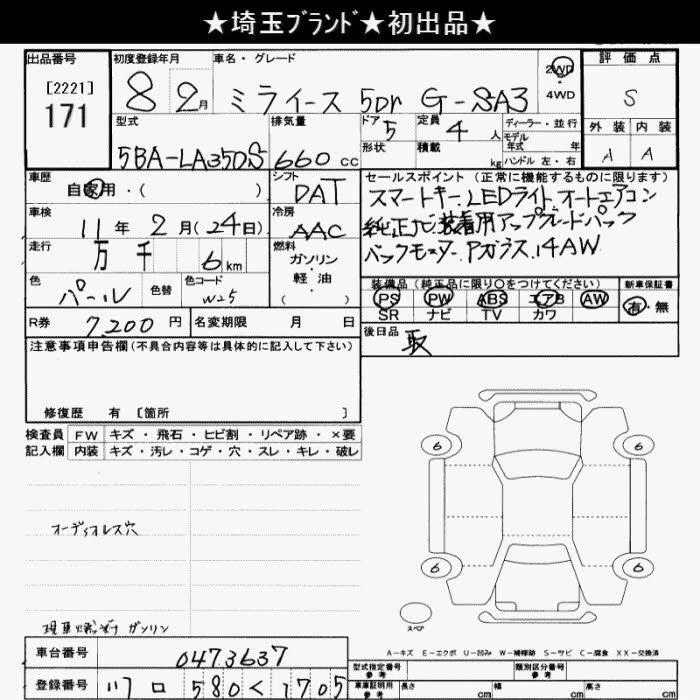 ★埼玉ﾌﾞﾗﾝﾄﾞ★初出品★
出品番号 初度登録年月 車名・グレード 評価点
[2221]
171
8 2月 ミライース 5Dr G-SA3 2WD ・ 4WD S
型式 排気量 ドア 定員 ディーラー・並行 外装 内装
5BA-LA350S 660cc 5 4人 モデル年式 年 A A
形状 積載 kg ハンドル 左・右
車歴 自家用・( ) シフト DAT
セールスポイント(正常に機能するものに限ります)
スマートキー.LEDライト.オートエアコン
車検 11年 2月(24日) 冷房 AAC
純正ナビ装着用アップグレードパック
走行 万 千 6km 燃料 ガソリン・軽油 ( )
バックモニター.Pガラス.14AW
色 パール 色替 色コード W25
装備品(純正品に限り○をつけてください) 新車保証書
PS PW ABS エアB AW 有・無
SR ナビ TV カワ
R券 7,200円 名変期限 月 日
後日品 取
注意事項申告欄(不具合内容等は具体的に記入して下さい)
修復歴 有 [箇所 ]
検査員 FW キズ・飛石・ヒビ割・リペア跡・×要
記入欄 内装 キズ・汚レ・コゲ・穴・スレ・キレ・破レ
6 6
オーディオレス穴
6 6
スペア
現車燃料 ガソリン
A-キズ E-エクボ U-凹み W-補修跡 S-サビ C-腐食 XX-交換済
車台番号 0473637
型式指定番号 参考 類別区分番号 参考
登録番号 川口 580 く 1705
車庫証明用 参考 長さ cm 幅 cm 高さ cm